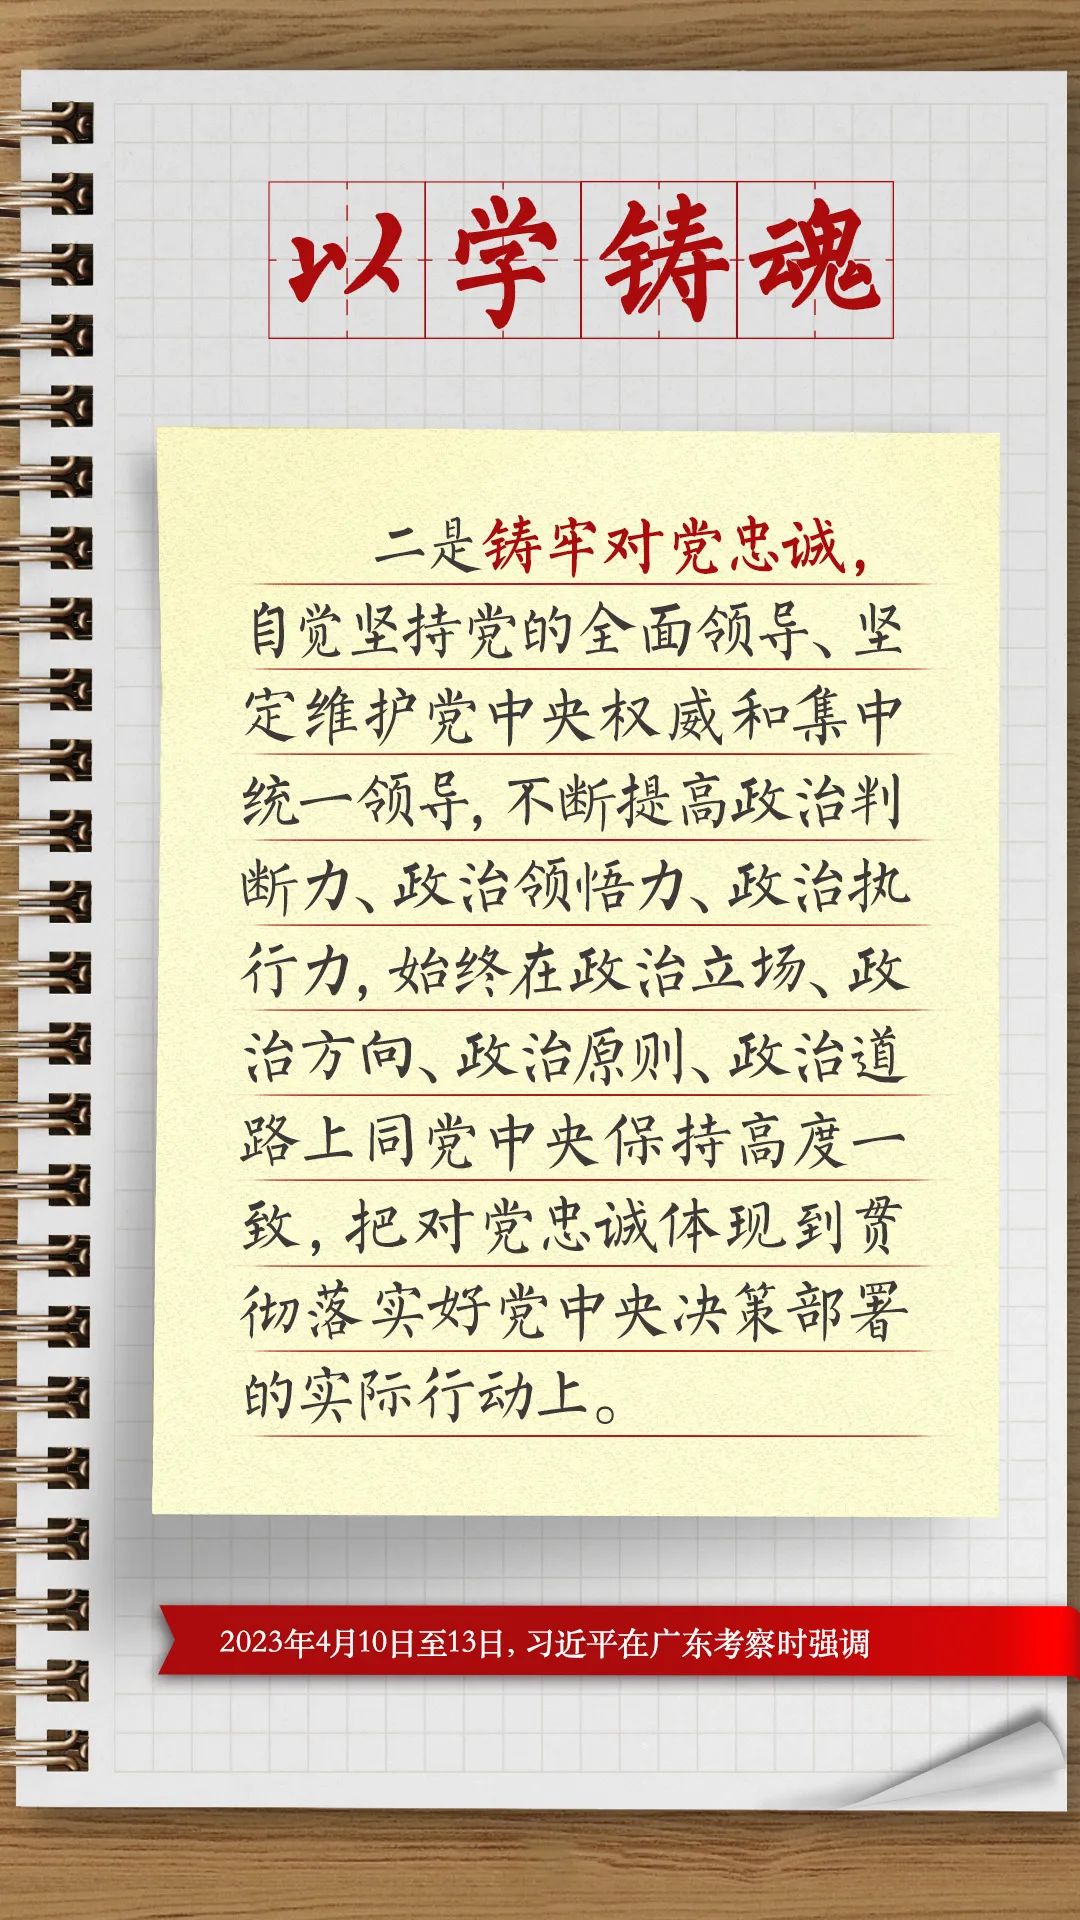 以学铸魂
二是铸牢对党忠诚，
自觉坚持党的全面领导、坚
定维护党中央权威和集中
统一领导，不断提高政治判
断力、政治领悟力、政治执
行力，始终在政治立场、政
治方向、政治原则、政治道
路上同党中央保持高度一
致，把对党忠诚体现到贯
彻落实好党中央决策部署
的实际行动上。
2023年4月10日至13日，习近平在广东考察时强调